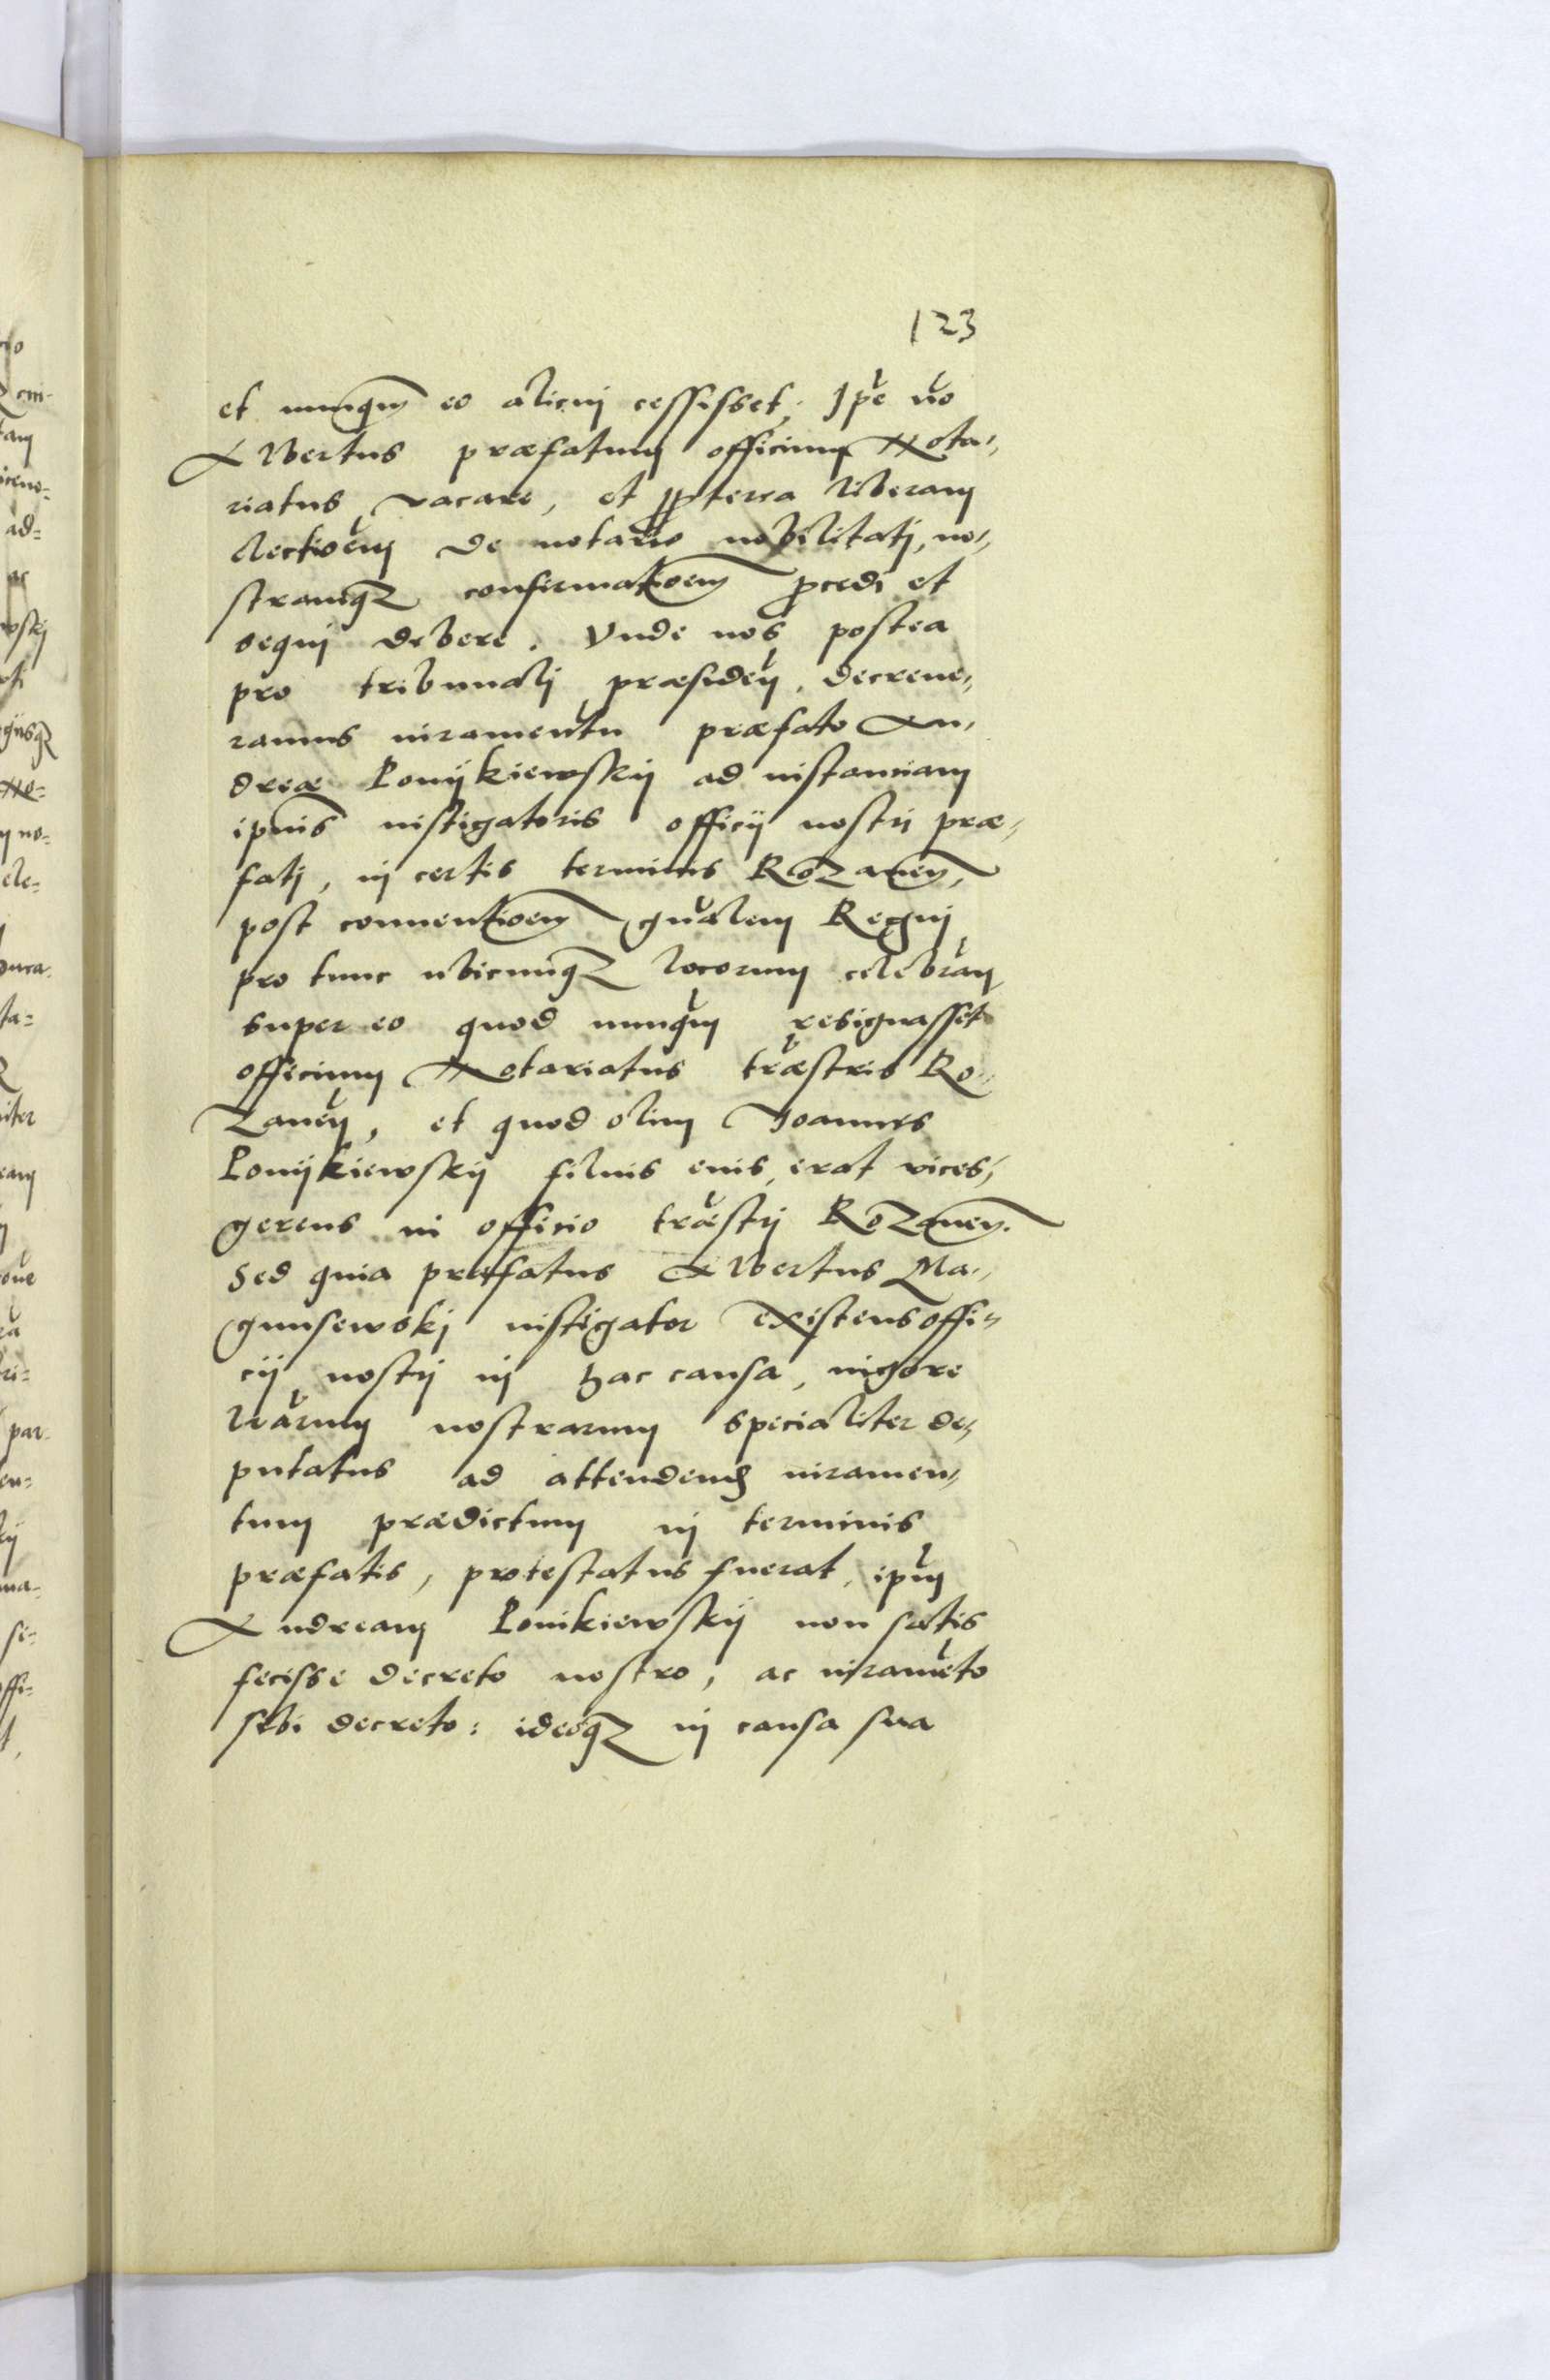 123
et nunqm eo alicui cessisset, Ipe vo
Albertus præfatum officium Nota-
riatus vacare, et ppterea liberam
electioem de notario nobilitati, no-
stramqz confirmatioem pcedi et
sequi debere. Vnde nos postea
pro tribunali præsiden. decreue-
ramus iuramentu præfato An-
dreæ Ponijkiewskij ad instantiam
ipius instigatoris officij nostri præ-
fati, in certis terminis Rozanen,
post conuentioem gnalem Regni
pro tunc ubicunqz locorum celebran
super eo quod nunqm resignasset
officium Notariatus træstris Ro-
zanen, et quod olim Joannes
Ponijkiewskij filius eius, erat vices-
gerens in officio træstri Rozanen.
Sed quia præfatus Albertus Ma-
gnusewski instigator existens offi-
cij nostri in hac causa, uigore
lrarum nostrarum specialiter de-
putatus ad attendend iuramen-
tum prædictum in terminis
præfatis, protestatus fuerat, ipm
Andream Ponikiewskij non satis
fecisse decreto nostro, ac iurameto
sibi decreto: ideoqz in causa sua